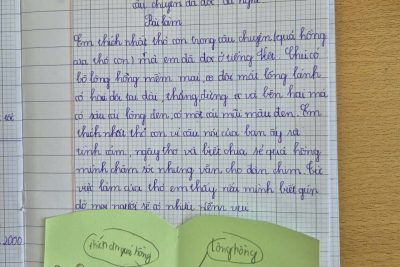 câu chuyện đã đọc đã nghe
Bài làm
Em thích nhất thỏ con trong câu chuyện (quả hồng
của thỏ con) mà em đã đọc ở tiếng Việt. Chú có
bộ lông hồng mềm mại, có đôi mắt lóng lánh
có hai đôi tai dài, thẳng đứng và bên hai má
có sáu túi lông đen, có một cái mũi màu đen. Em
thích nhất thỏ con vì câu nói của bạn ấy và
tình cảm, ngây thơ và biết chia sẻ quả hồng
mình chăm sóc nhưng vẫn cho đàn chim. Từ
việc làm của thỏ em thấy nếu mình biết giúp
đỡ mọi người sẽ có nhiều niềm vui
thích ăn quả hồng
lông hồng
2000